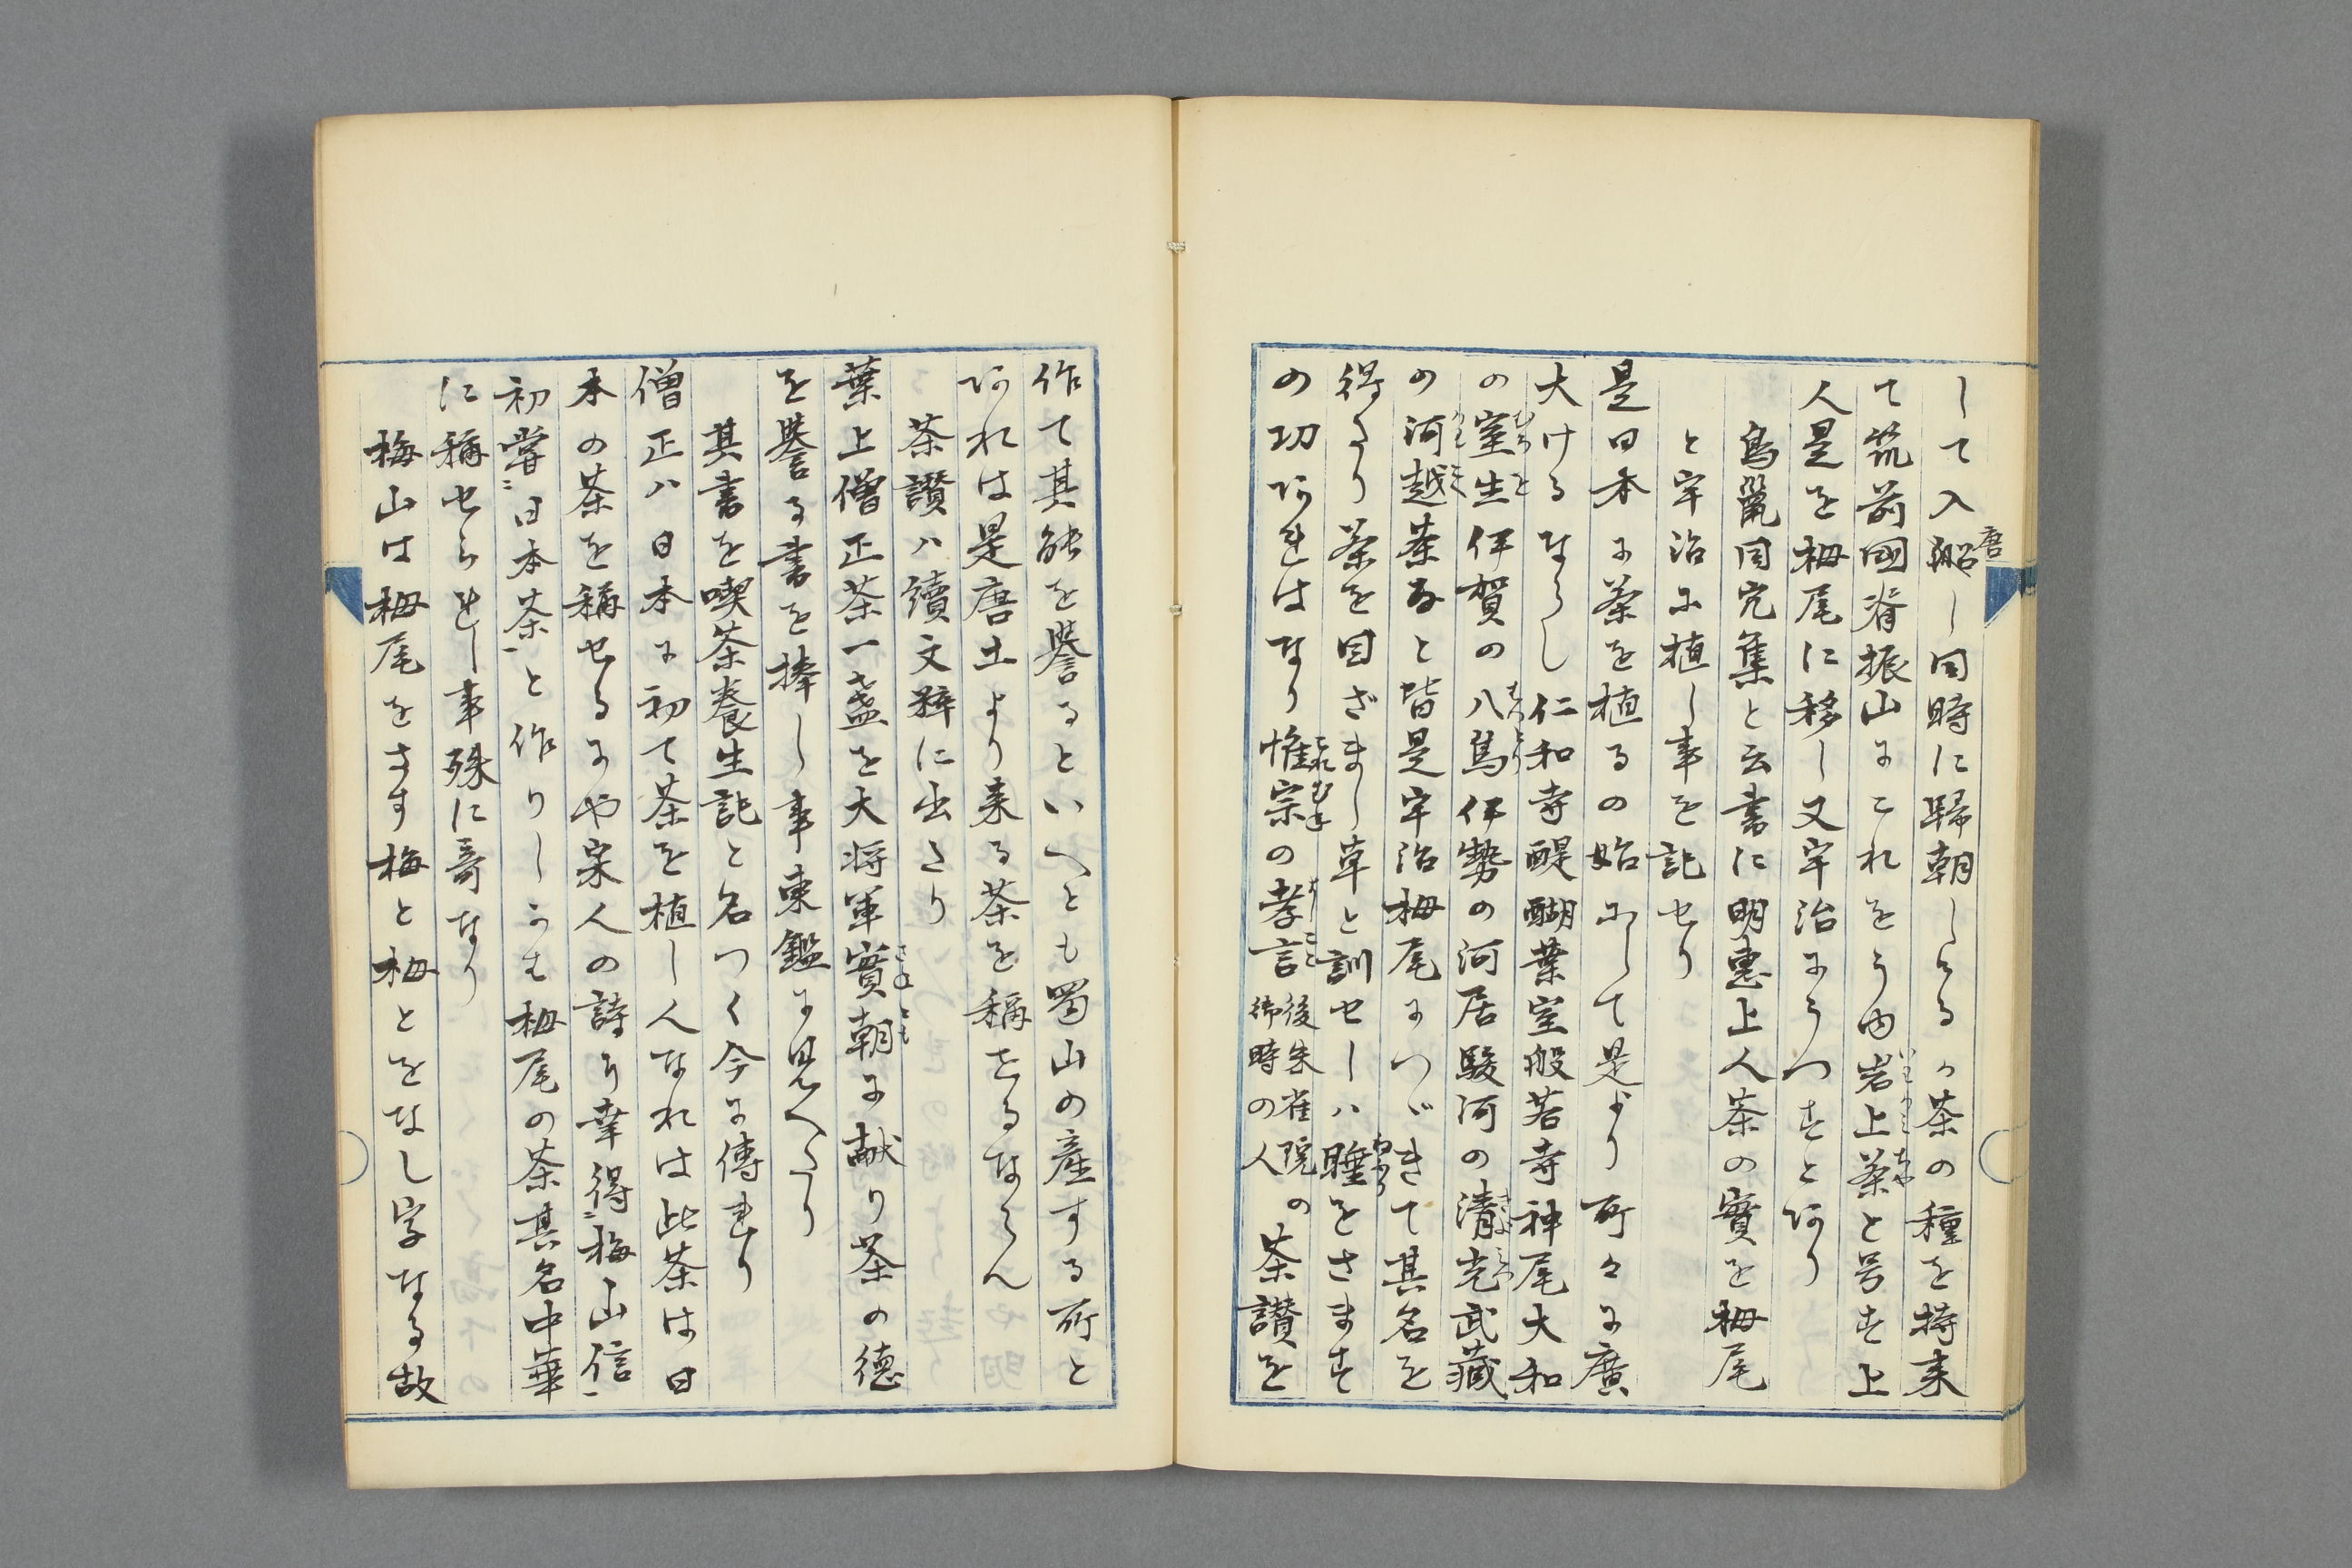 して入唐し同時に歸朝しけるか茶の種を持来
て筑前國脊振山にこれをうゆ岩上茶と号す上
人是を栂尾に移し又宇治にうつすとあり
烏鼠同穴集と云書に明惠上人茶の實を栂尾
と宇治に植し事を記せり
是日本に茶を植るの始にして是より所々に廣
大けるならし仁和寺醍醐葉室般若寺神尾大和
の室生伊賀の八鳥伊勢の河居駿河の清見武藏
の河越茶など皆是宇治栂尾につゞきて其名を
得たり茶を目ざまし草と訓せしハ睡をさます
の功あれはなり惟宗の孝言後朱雀院の御時の人の茶讃を
作て其能を誉るといへとも蜀山の産する所と
あれは是唐土より来る茶を稱せるならん
茶讃ハ續文粹に出たり
葉上僧正茶一盞を大将軍實朝に献り茶の德
を誉る書を捧し事東鑑に見へたり
其書を喫茶養生記と名つく今に傳れり
僧正ハ日本に初て茶を植し人なれは此茶は日
本の茶を稱せるにや宋人の詩に幸得ニ梅山信一
初嘗ニ日本茶一と作りしかも栂尾の茶其名中華
に稱せられし事殊に奇なり
梅山は栂尾をさす梅と栂とをなし字なる故